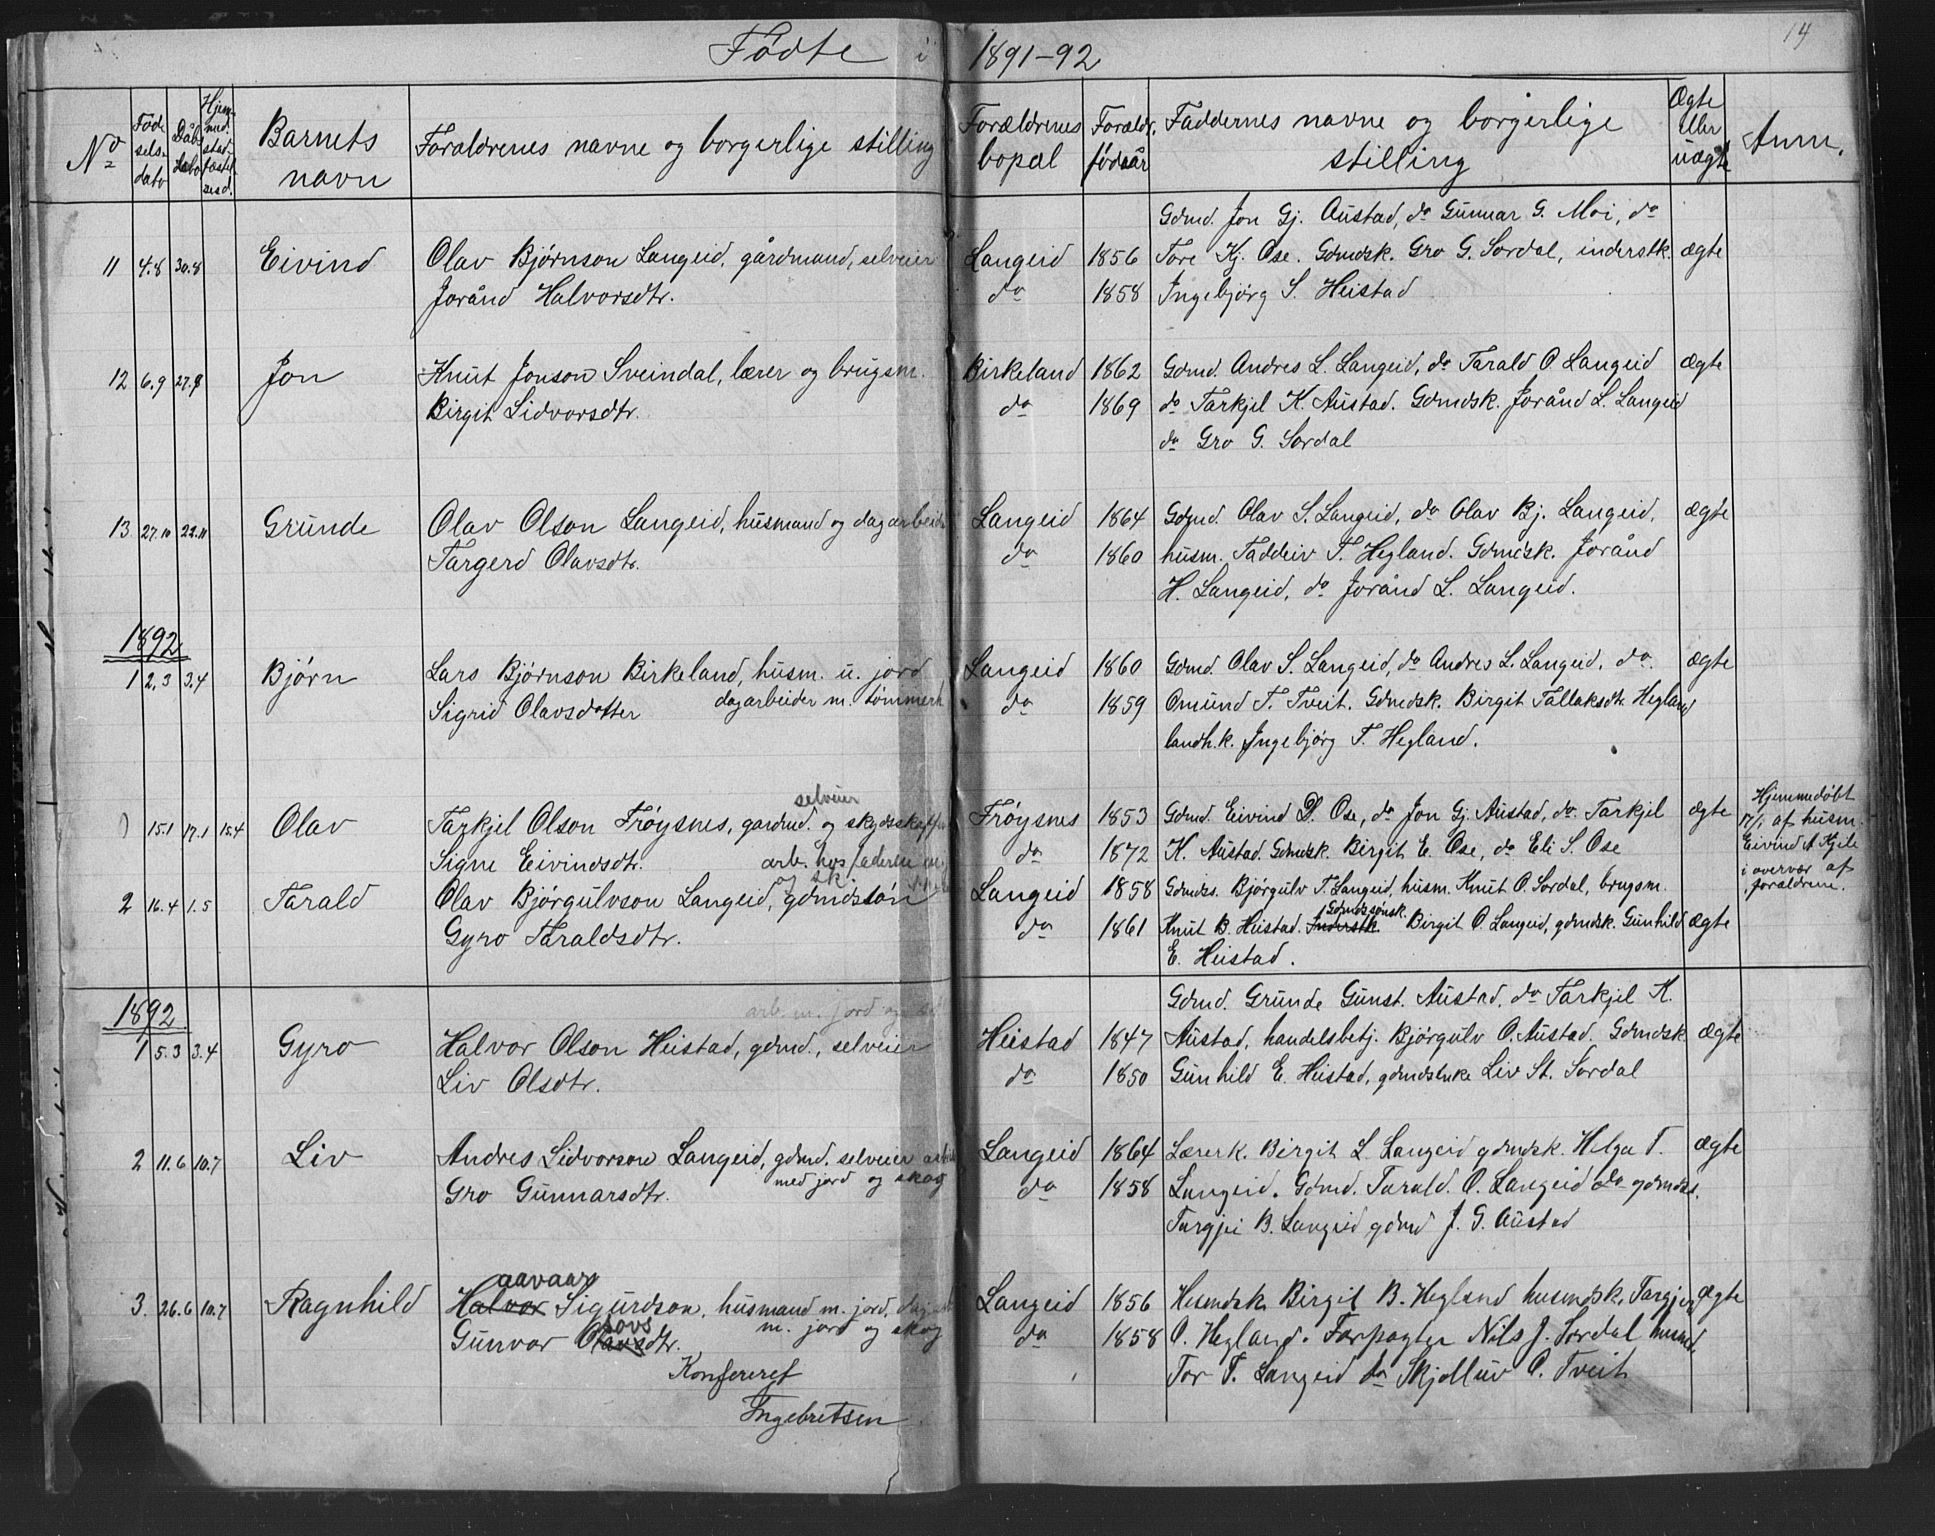 14
Fødte i 1891-92
No | Fødselsdato | Dåbsdato | Hjemmed. stadfæstelsesd. | Barnets navn | Forældrenes navne og borgerlige stilling | Forældrenes bopæl | Forældr. fødeår | Faddernes navne og borgerlige stilling | Ægte eller uægte | Anm.
Gdmd. Jon Gj. Austad, do Gunnar G. Moi, do
11 4.8 30.8 Eivind Olav Bjørnson Langeid, gårdmand, selveier Langeid 1856 Tore Kj. Ose. Gdmdsk. Gro G. Sordal, inderstk. ægte
Joránd Halvorsdtr. do 1858 Ingebjørg S. Heistad
12 6.9 27.9 Jon Knut Jonson Sveindal, lærer og brugsm. Birkeland 1862 Gdmd. Andres L. Langeid, do Tarald O. Langeid ægte
Birgit Lidvorsdtr. do 1869 do Tarkjel K. Austad. Gdmdsk. Joránd L. Langeid
do Gro G. Sordal
13 27.10 22.11 Grunde Olav Olson Langeid, husmand og dagarbeider Langeid 1864 Gdmd. Olav S. Langeid, do Olav Bj. Langeid, ægte
Targerd Olavsdtr. do 1860 husm. Taddeiv T. Hegland. Gdmdsk. Joránd
H. Langeid, do Joránd L. Langeid.
1892
1 2.3 3.4 Bjørn Lars Bjørnson Birkeland, husm. u. jord Langeid 1860 Gdmd. Olav S. Langeid, do Andres L. Langeid, do. ægte
Sigrid Olavsdatter dagarbeider m. tømmerh do 1859 Omund T. Tveit. Gdmdsk. Birgit Tallaksdtr. Hegland
landh.k. Ingebjørg T. Hegland.
selveier
15.1 17.1 15.4 Olav Tarkjel Olson Frøysnes, gardmd. og skydsskaffer Frøysnes 1853 Gdmd. Eivind D. Ose, do Jon Gj. Austad, do. Tarkjel ægte
Signe Eivindsdtr. do 1872 K. Austad. Gdmdsk. Birgit E. Ose, do Eli S. Ose
Hjemmedøbt
17/1 af husm.
Eivind A Kjele
i overvær af
forældrene.
arb. hos faderen m
og sk.
2 16.4 1.5 Tarald Olav Bjørgulvson Langeid, gdmdssøn Langeid 1858 Gdmds. Bjørgulv T. Langeid, husm. Knut O. Sordal, brugsm.
Gyro Taraldsdtr. do 1861 Knut B. Heistad. Inderstk. Gdmdssønsk. Birgit O. Langeid, gdmdsk. Gunhild ægte
E. Heistad.
1892
arb. m. jord og
Gdmd. Grunde Gunst. Austad, do Tarkjel K.
1 5.3 3.4 Gyro Halvor Olson Heistad, gdmd., selveier Heistad 1847 Austad, handelsbetj. Bjørgulv O. Austad. Gdmdsk ægte
Liv Olsdtr. do 1850 Gunhild E. Heistad, gdmdsenke Liv St. Sordal
2 11.6 10.7 Liv Andres Lidvorson Langeid, gdmd. selveier arbeide Langeid 1864 Lærerk. Birgit L Langeid gdmdsk. Helga T. ægte
med jord og skog
Gro Gunnarsdtr. do 1858 Langeid. Gdmd. Tarald. O. Langeid do gdmds.
Targjei B. Langeid gdmd J. G. Austad
aavaar
3. 26.6 10.7 Ragnhild Halvor Sigurdson, husmand m. jord, dagarb Langeid 1856 Husmdsk Birgit B. Hegland husmdsk. Targjerd ægte
m. jord og skog
Gunvor Olavsdtr. do 1858 O. Hegland. Forpagter Nils J. Sordal husmd.
Tor T. Langeid do Skjelluv O. Tveit
Konfereret
Ingebretsen